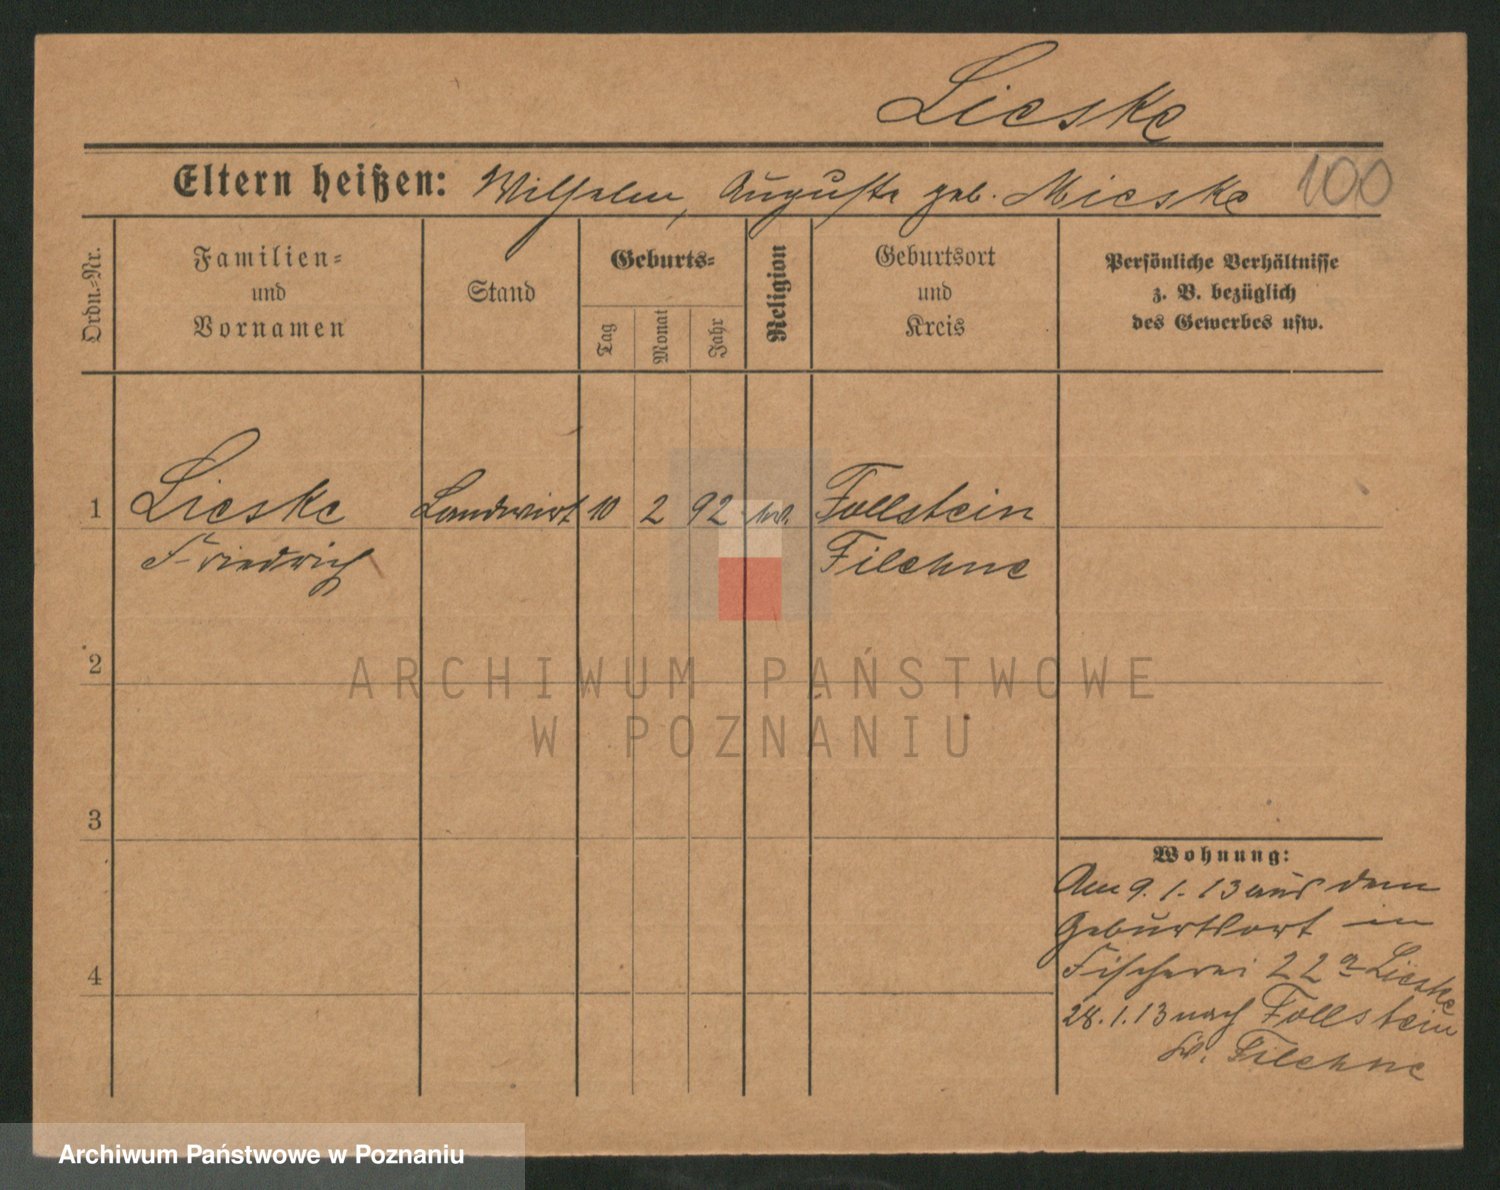 Lieske
Eltern heißen: Wilhelm, Auguste geb. Mieske 100
Ordn.-Nr.
Familien-
und
Vornamen
Stand
Geburts-
Tag
Monat
Jahr
Religion
Geburtsort
und
Kreis
Persönliche Verhältnisse
z. B. bezüglich
des Gewerbes usw.
1 Lieske Landwirt 10 2 92 Follstein
Friedrich Filehne
2
3
4
Wohnung:
Am 9. 1. 13 aus dem
Geburtsort in
Fischerei 22a Lieske
28. 1. 13 nach Follstein
Filehne
ARCHIWUM PAŃSTWOWE
W POZNANIU
Archiwum Państwowe w Poznaniu